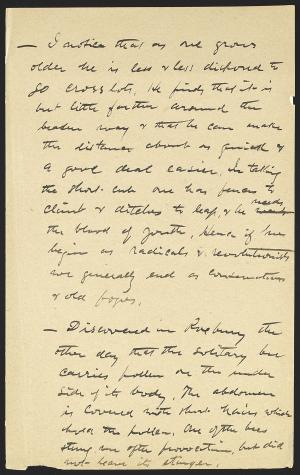 — I notice that as one grows
older he is less & less disposed to
go cross lots. He finds that it is
but little farther around the
beaten way & that he can make
the distance about as quick &
a good deal easier. In taking
the short-cut one has fences to
climb & ditches to leap, & he needs
the blood of youth. Hence if we
begin as radicals & revolutionists
we generally end as conservatives
& old fogies.
— Discovered in Roxbury the
other day that the solitary bee
carries pollen on the under
side of its body. The abdomen
is covered with short hairs which
hold the pollen. One of the bees
stung me after provocation, but did
not leave its stinger.